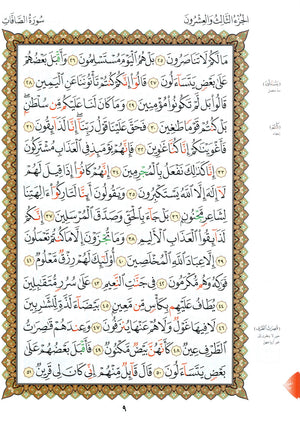 الجزء الثالث والعشرون سورة الصافات
مَا لَكُمْ لَا تَنَاصَرُونَ ٢٥ بَلْ هُمُ الْيَوْمَ مُسْتَسْلِمُونَ ٢٦ وَأَقْبَلَ بَعْضُهُمْ
عَلَىٰ بَعْضٍ يَتَسَاءَلُونَ ٢٧ قَالُوا إِنَّكُمْ كُنْتُمْ تَأْتُونَنَا عَنِ الْيَمِينِ ٢٨
قَالُوا بَلْ لَمْ تَكُونُوا مُؤْمِنِينَ ٢٩ وَمَا كَانَ لَنَا عَلَيْكُمْ مِنْ سُلْطَانٍ
بَلْ كُنْتُمْ قَوْمًا طَاغِينَ ٣٠ فَحَقَّ عَلَيْنَا قَوْلُ رَبِّنَا إِنَّا لَذَائِقُونَ ٣١
فَأَغْوَيْنَاكُمْ إِنَّا كُنَّا غَاوِينَ ٣٢ فَإِنَّهُمْ يَوْمَئِذٍ فِي الْعَذَابِ مُشْتَرِكُونَ
٣٣ إِنَّا كَذَٰلِكَ نَفْعَلُ بِالْمُجْرِمِينَ ٣٤ إِنَّهُمْ كَانُوا إِذَا قِيلَ لَهُمْ
لَا إِلَٰهَ إِلَّا اللَّهُ يَسْتَكْبِرُونَ ٣٥ وَيَقُولُونَ أَئِنَّا لَتَارِكُو آلِهَتِنَا
لِشَاعِرٍ مَجْنُونٍ ٣٦ بَلْ جَاءَ بِالْحَقِّ وَصَدَّقَ الْمُرْسَلِينَ ٣٧ إِنَّكُمْ
لَذَائِقُو الْعَذَابِ الْأَلِيمِ ٣٨ وَمَا تُجْزَوْنَ إِلَّا مَا كُنْتُمْ تَعْمَلُونَ
٣٩ إِلَّا عِبَادَ اللَّهِ الْمُخْلَصِينَ ٤٠ أُولَٰئِكَ لَهُمْ رِزْقٌ مَعْلُومٌ ٤١
فَوَاكِهُ وَهُمْ مُكْرَمُونَ ٤٢ فِي جَنَّاتِ النَّعِيمِ ٤٣ عَلَىٰ سُرُرٍ مُتَقَابِلِينَ
٤٤ يُطَافُ عَلَيْهِمْ بِكَأْسٍ مِنْ مَعِينٍ ٤٥ بَيْضَاءَ لَذَّةٍ لِلشَّارِبِينَ
٤٦ لَا فِيهَا غَوْلٌ وَلَا هُمْ عَنْهَا يُنْزَفُونَ ٤٧ وَعِنْدَهُمْ قَاصِرَاتُ
الطَّرْفِ عِينٌ ٤٨ كَأَنَّهُنَّ بَيْضٌ مَكْنُونٌ ٤٩ فَأَقْبَلَ بَعْضُهُمْ عَلَىٰ
بَعْضٍ يَتَسَاءَلُونَ ٥٠ قَالَ قَائِلٌ مِنْهُمْ إِنِّي كَانَ لِي قَرِينٌ ٥١
٩